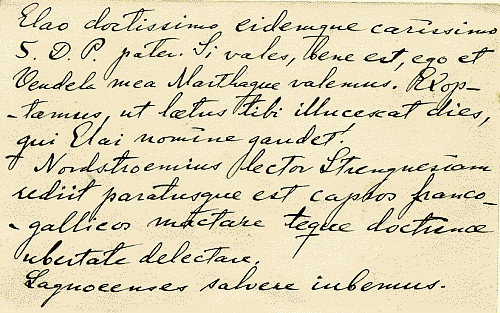 Elao doctissimo eidemque carissimo
S. D. P. pater. Si vales, bene est, ego et
Vendela mea Marthaque valemus. Exop-
-tamus, ut lætus tibi illucescat dies,
qui Elai nomine gaudet!
Nordstroemius lector Strengnesiam
rediit paratusque est capros franco-
-gallicos mactare teque doctrinæ
ubertate delectare.
Lagnoeenses salvere iubemus.